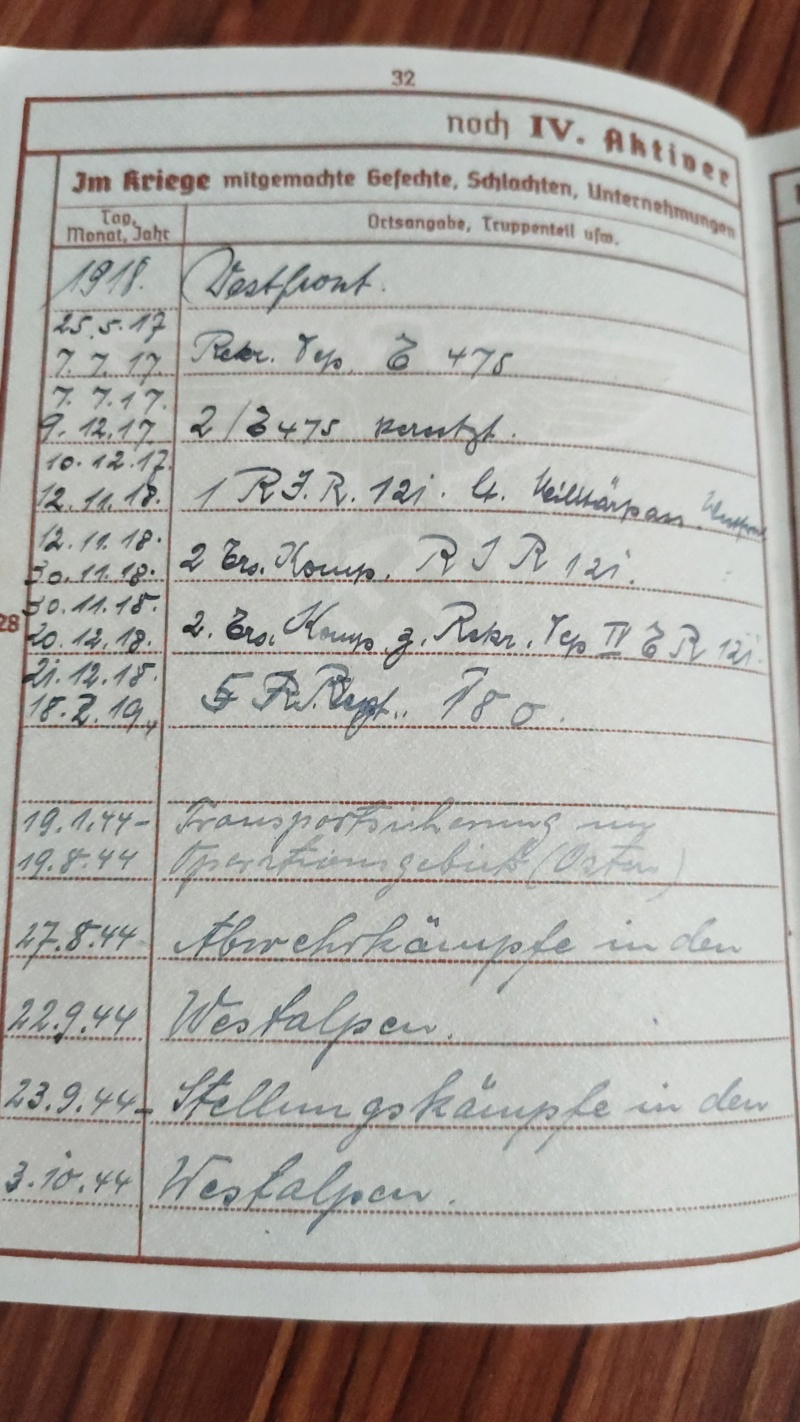 32
noch IV. Aktiver
Im Kriege mitgemachte Gefechte, Schlachten, Unternehmungen
Tag, Monat, Jahr
Ortsangabe, Truppenteil usw.
1918. Westfront.
25.5.17
7.7.17. Rekr. Dep. E 475
7.7.17.
9.12.17. 2/E475 versetzt.
10.12.17.
12.11.18. 1 R.I.R. 121. lt. Militärpass. Westfront
12.11.18.
30.11.18. 2 Ers. Komp. R I R 121.
30.11.18.
20.12.18. 2. Ers. Komp. z. Rekr. Dep II E R 121.
21.12.18.
18.2.19. 180.
19.1.44- Transportsicherung im
19.8.44 Operationsgebiet (Osten)
27.8.44- Abwehrkämpfe in den
22.9.44 Westalpen.
23.9.44- Stellungskämpfe in den
3.10.44 Westalpen.
28